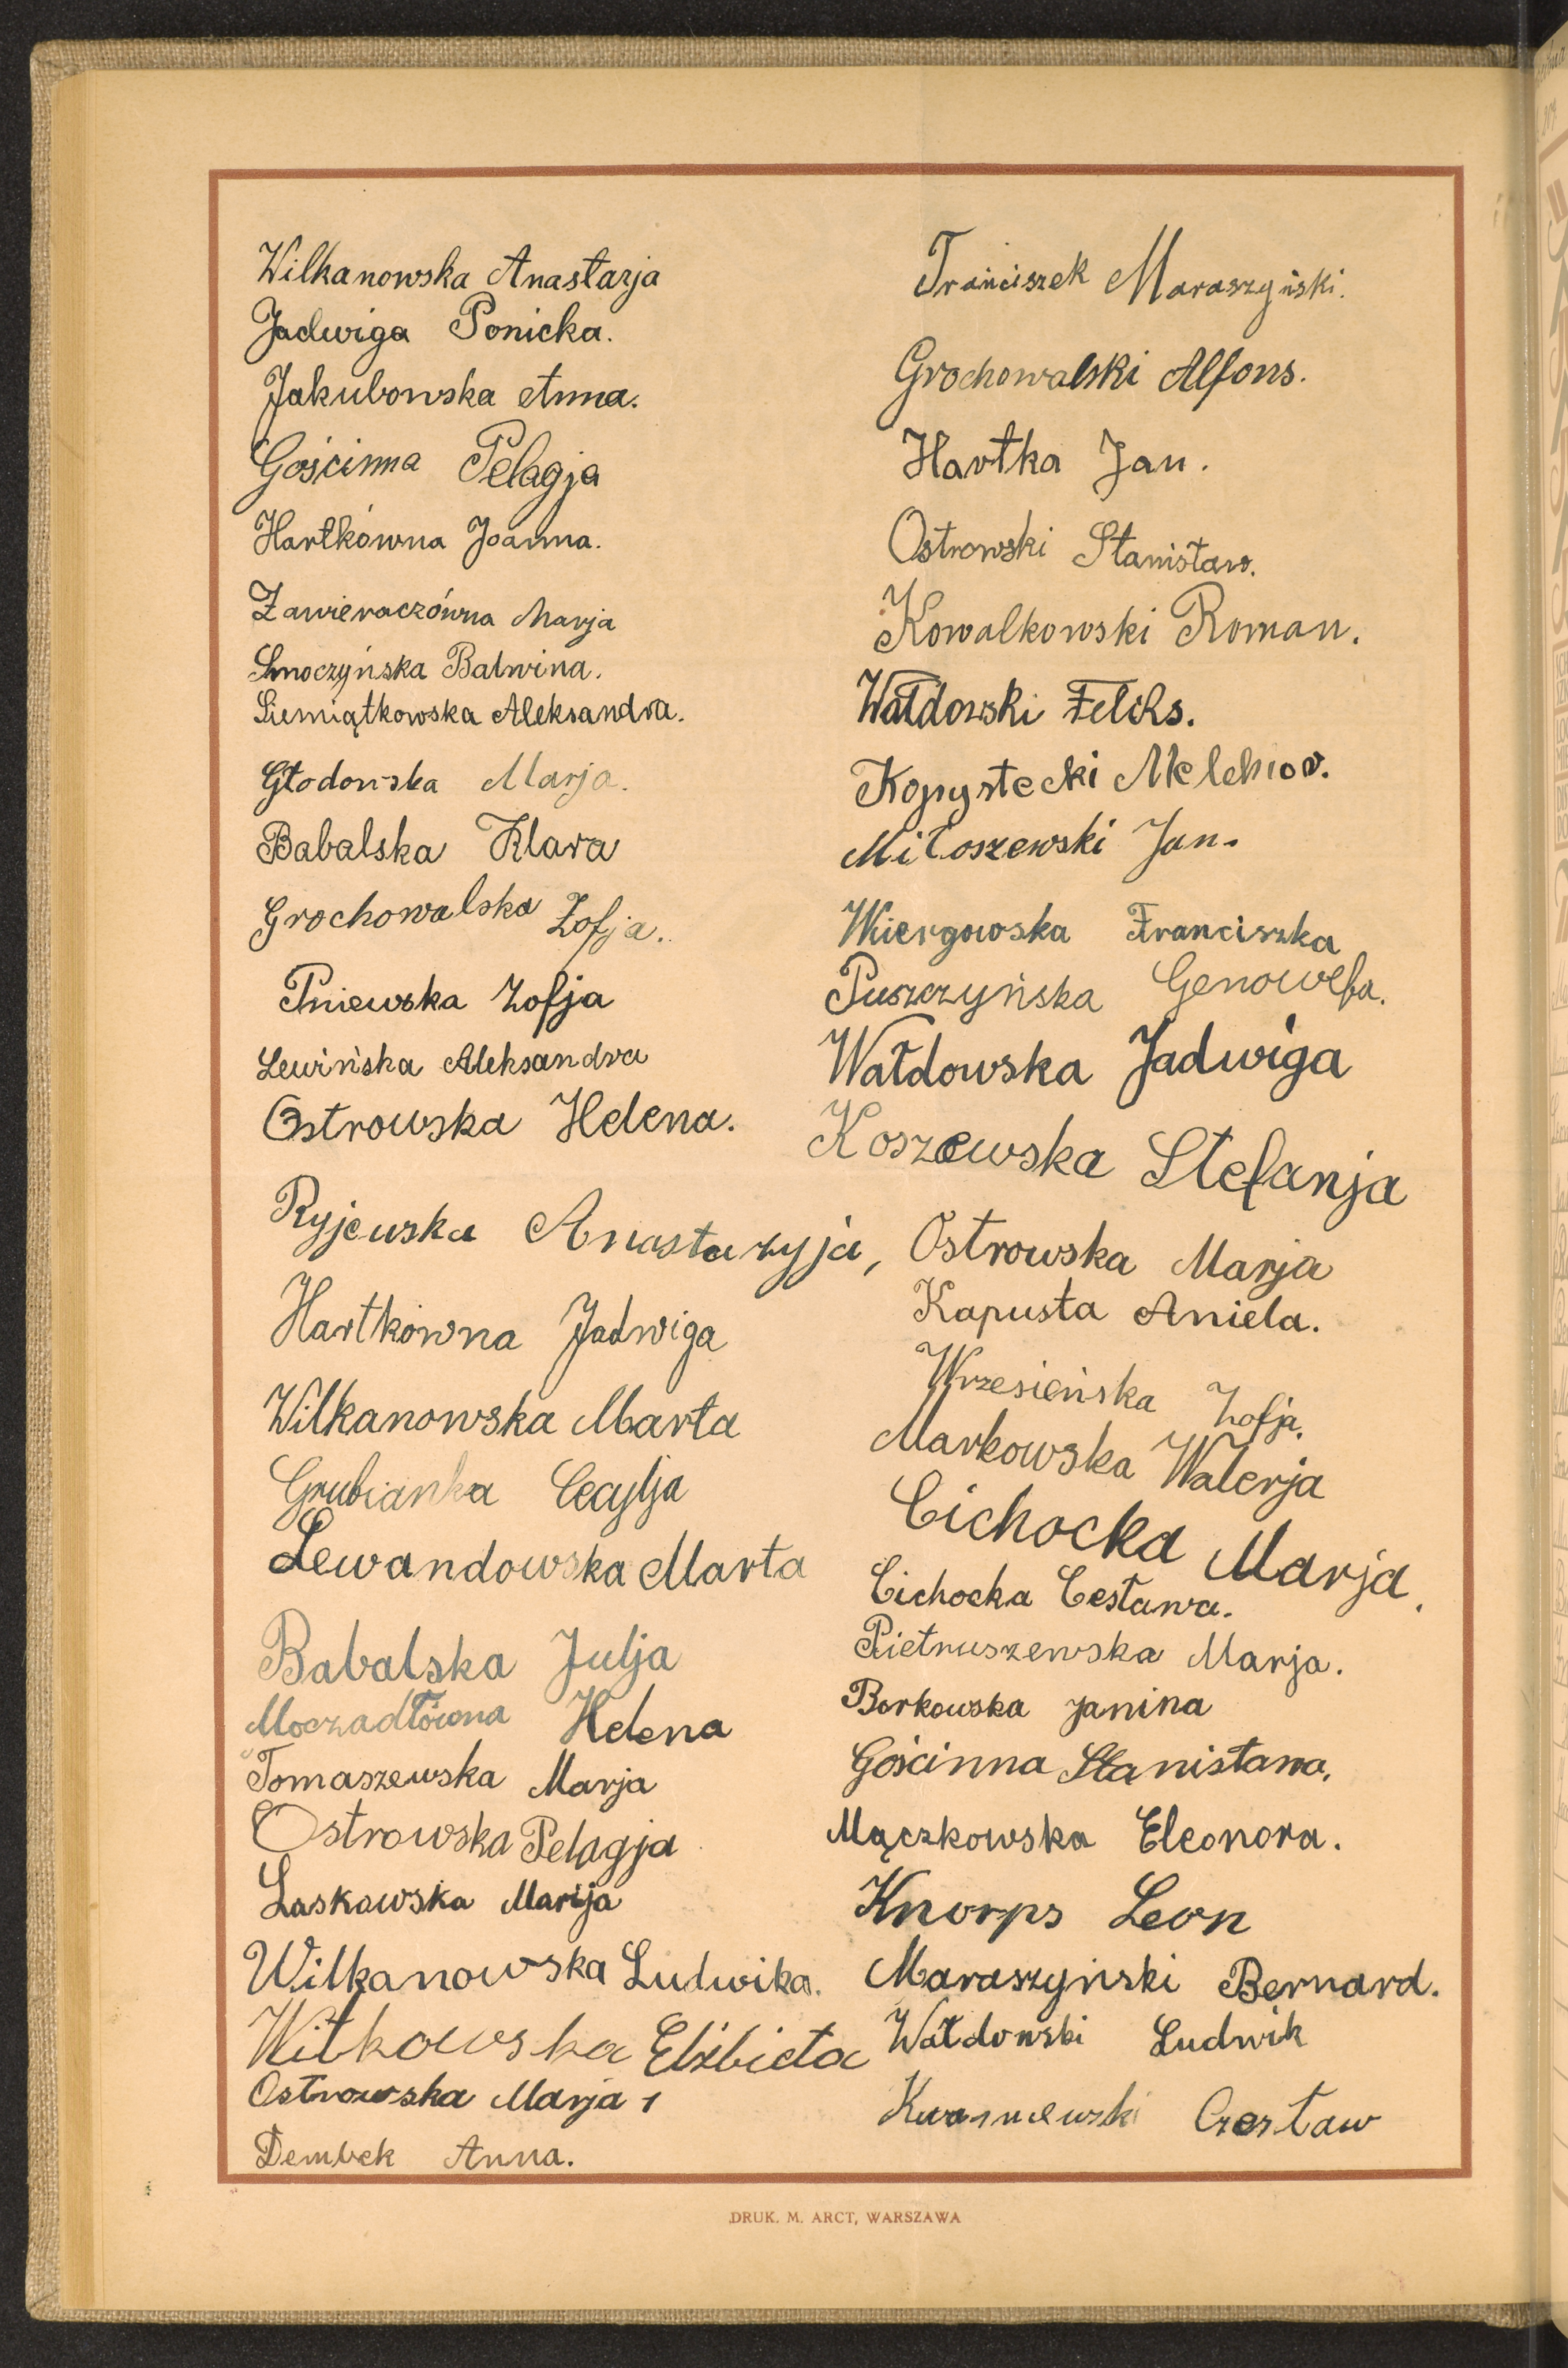 Wilkanowska Anastazja
Jadwiga Ponicka.
Jakubowska Anna.
Gościnna Pelagja
Hartkówna Joanna.
Zawieraczówna Marja
Smoczyńska Balwina.
Siemiątkowska Aleksandra.
Głodowska Marja.
Babalska Klara
Grochowalska Zofja.
Pniewska Zofja
Lewińska Aleksandra
Ostrowska Helena.
Ryjewska Anastazyja,
Hartkówna Jadwiga
Wilkanowska Marta
Grubianka Cecylja
Lewandowska Marta
Babalska Julja
Moczadłówna Helena
Tomaszewska Marja
Ostrowska Pelagja
Laskowska Marija
Wilkanowska Ludwika.
Witkowska Elżbieta
Ostrowska Marja 1
Dembek Anna.
Franciszek Maraszyński.
Grochowalski Alfons.
Hartka Jan.
Ostrowski Stanisław.
Kowalkowski Roman.
Wałdowski Feliks.
Kopystecki Melchior.
Miłoszewski Jan.
Wiergowska Franciszka
Puszczyńska Genowefa.
Wałdowska Jadwiga
Koszewska Stefanja
Ostrowska Marja
Kapusta Aniela.
Wrzesieńska Zofja.
Markowska Walerja
Cichocka Marja.
Cichocka Cesława.
Pietruszewska Marja.
Borkowska Janina
Gościnna Stanisława.
Mączkowska Eleonora.
Knorps Leon
Maraszyński Bernard.
Wałdowski Ludwik
Kwasniewski Czesław
DRUK. M. ARCT, WARSZAWA